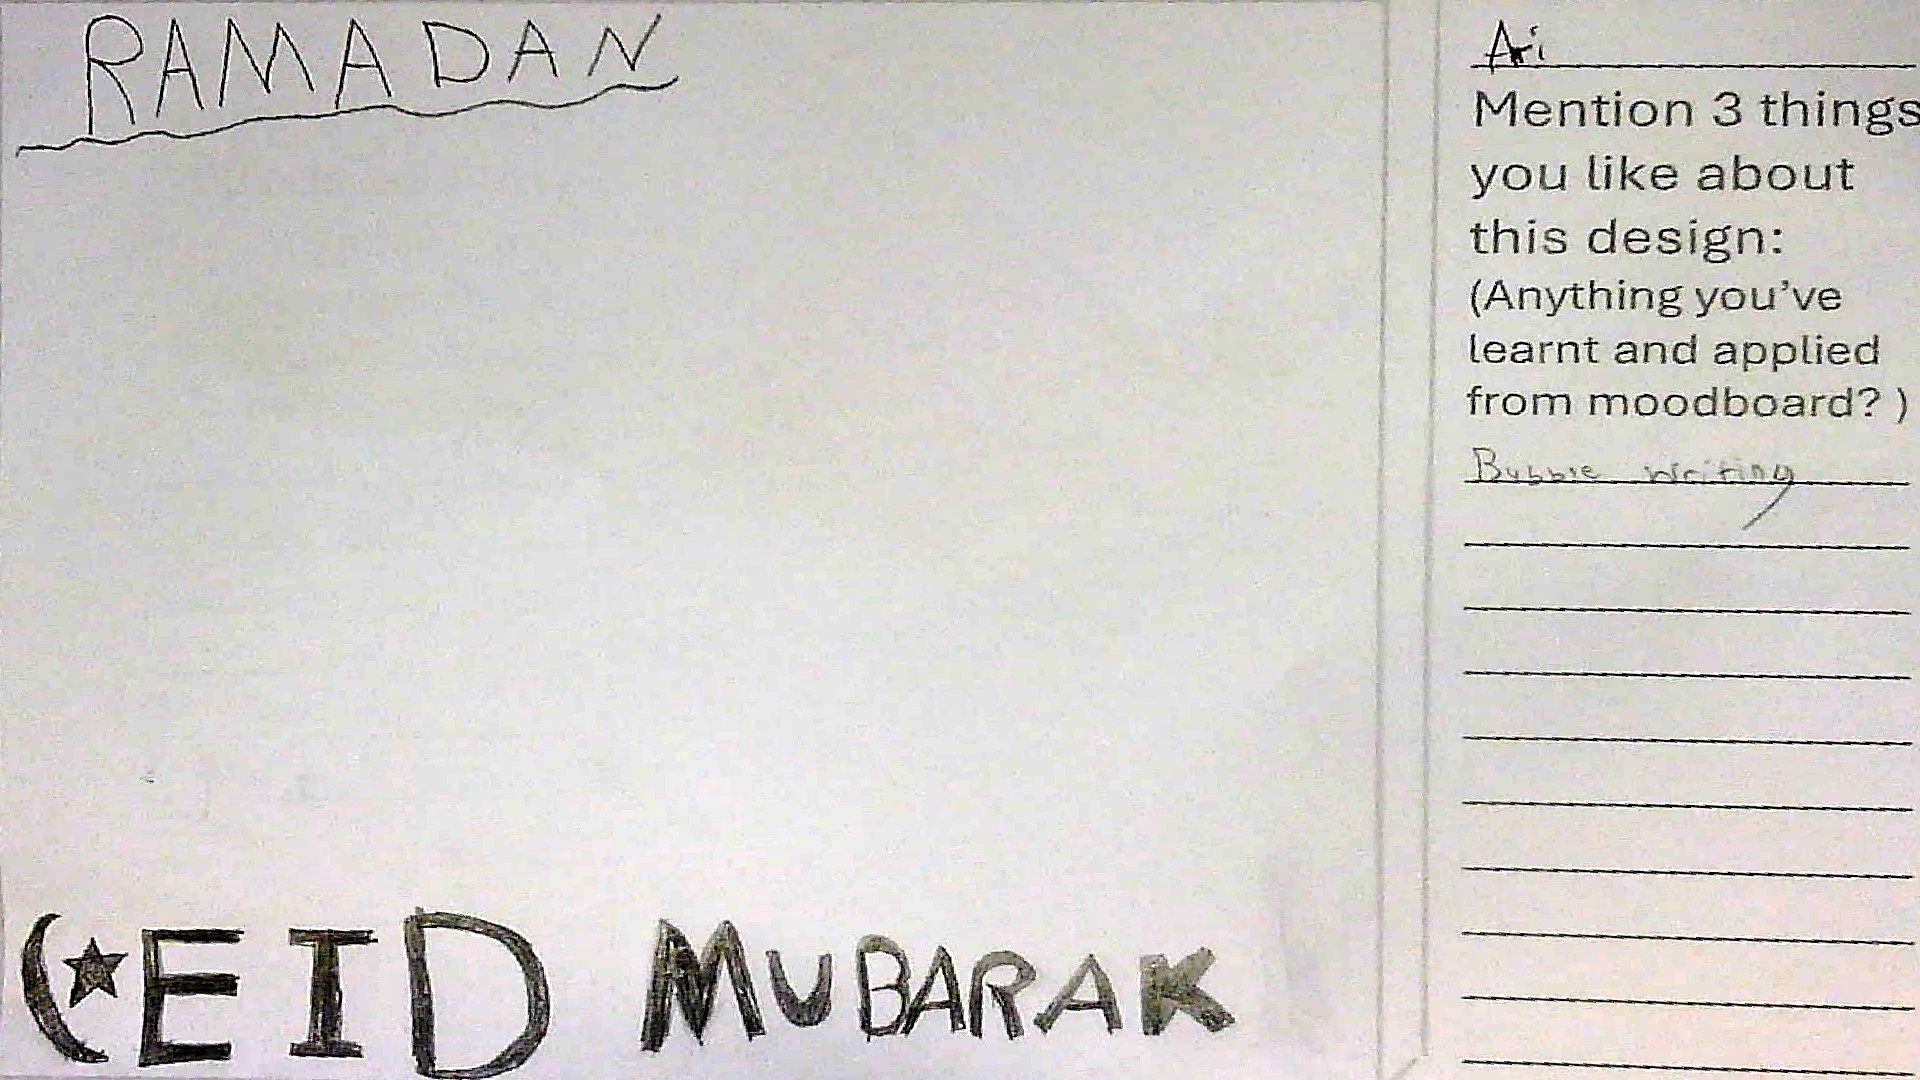 RAMADAN
EID MUBARAK
Ari
Mention 3 things
you like about
this design:
(Anything you've
learnt and applied
from moodboard? )
Bubble writing